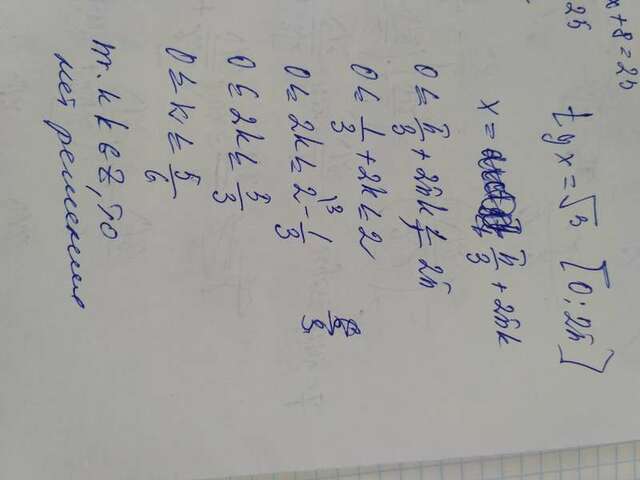 x+8=25
25
tg x = √3 [0; 2π]
x = π/3 + 2πk
0 ≤ π/3 + 2πk ≤ 2π
0 ≤ 1/3 + 2k ≤ 2
0 ≤ 2k ≤ 2 - 1/3
0 ≤ 2k ≤ 5/3
0 ≤ k ≤ 5/6
т.к k ∈ Z, то
нет решения